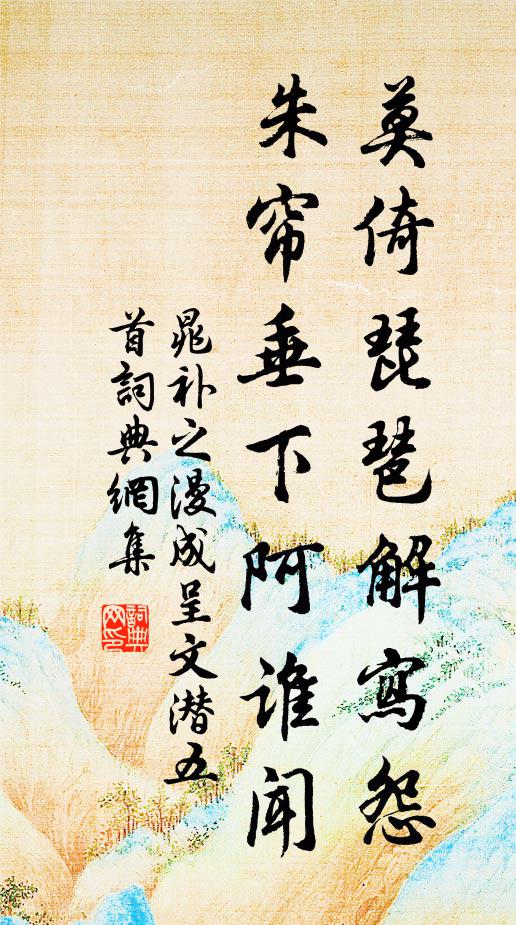 莫倚琵琶解寫怨
朱帘垂下阿谁闻
晁补之漫成呈文潜五
首詞典網集
詞典
网印